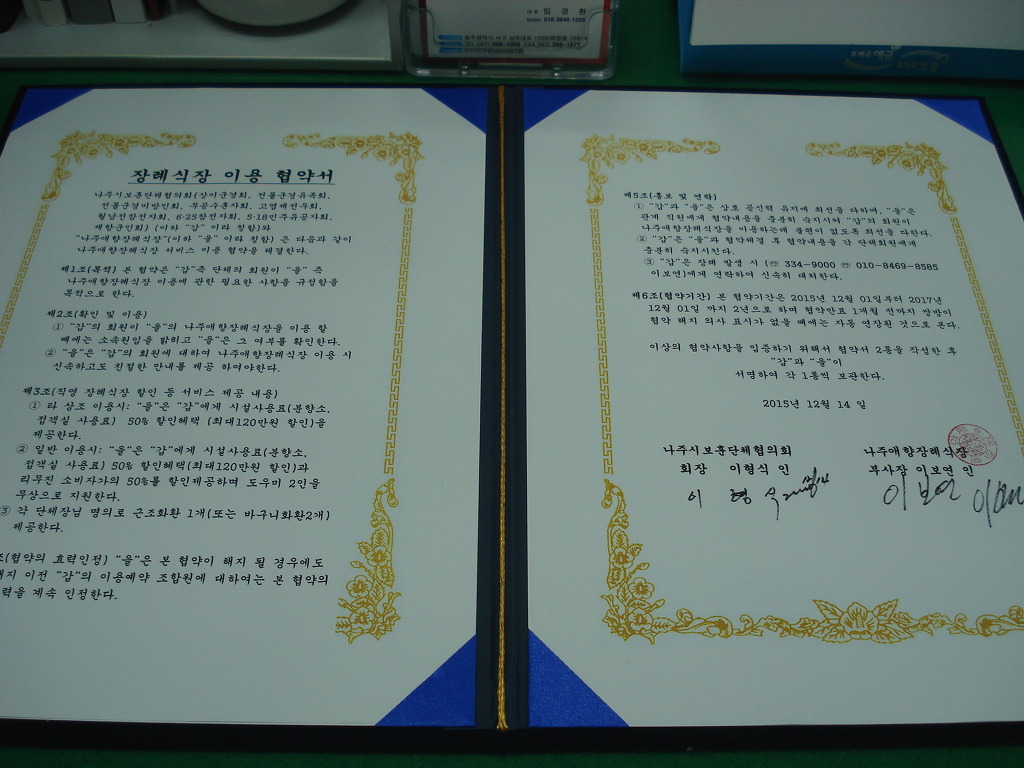 대표 임경환
Mobile 010.3640.1200
장례식장 이용 협약서
나주시보훈단체협의회(상이군경회, 전몰군경유족회,
전몰군경미망인회, 무공수훈자회, 고엽제전우회,
월남전참전자회, 6·25참전자회, 5·18민주유공자회,
재향군인회) (이하 "갑" 이라 칭함)와
"나주애향장례식장"(이하 "을" 이라 칭함) 은 다음과 같이
나주애향장례식장 서비스 이용 협약을 체결한다.
제1조(목적) 본 협약은 "갑"측 단체의 회원이 "을" 측
나주애향장례식장 이용에 관한 필요한 사항을 규정함을
목적으로 한다.
제2조(확인 및 이용)
① "갑"의 회원이 "을"의 나주애향장례식장을 이용 할
때에는 소속원임을 밝히고 "을"은 그 여부를 확인한다.
② "을"은 "갑"의 회원에 대하여 나주애향장례식장 이용 시
신속하고도 친절한 안내를 제공 하여야한다.
제3조(직영 장례식장 할인 등 서비스 제공 내용)
① 타 상조 이용시: "을"은 "갑"에게 시설사용료(분향소,
접객실 사용료) 50% 할인혜택 (최대120만원 할인)을
제공한다.
② 일반 이용시: "을"은 "갑"에게 시설사용료(분향소,
접객실 사용료) 50% 할인혜택(최대120만원 할인)과
리무진 소비자가의 50%를 할인제공하며 도우미 2인을
무상으로 지원한다.
③ 각 단체장님 명의로 근조화환 1개(또는 바구니화환2개)
제공한다.
조(협약의 효력인정) "을"은 본 협약이 해지 될 경우에도
해지 이전 "갑"의 이용예약 조합원에 대하여는 본 협약의
력을 계속 인정한다.
제5조(홍보 및 연락)
① "갑"과 "을"은 상호 공신력 유지에 최선을 다하며, "을"은
관계 직원에게 협약내용을 충분히 숙지시켜 "갑"의 회원이
나주애향장례식장을 이용하는데 불편이 없도록 최선을 다한다.
② "갑"은 "을"과 협약체결 후 협약내용을 각 단체회원에게
충분히 숙지시킨다.
③ "갑"은 장례 발생 시 (☏ 334-9000 ☏ 010-8469-8585
이보연)에게 연락하여 신속히 대처한다.
제6조(협약기간) 본 협약기간은 2015년 12월 01일부터 2017년
12월 01일 까지 2년으로 하며 협약만료 1개월 전까지 쌍방이
협약 해지 의사 표시가 없을 때에는 자동 연장된 것으로 본다.
이상의 협약사항을 입증하기 위해서 협약서 2통을 작성한 후
"갑"과 "을"이
서명하여 각 1통씩 보관한다.
2015년 12월 14일
나주시보훈단체협의회
회장 이형식 인
이 형 식
나주애향장례식장
부사장 이보연 인
이보연